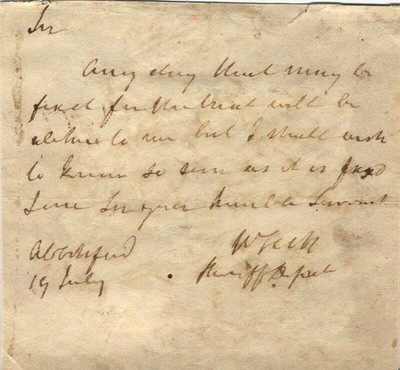 Sir
Any day that may be
fixd for the trial will be
to me but I shall wish
to know so soon as it is fixd
Sir your humble Servant
Abbotsford W Scott
19 July Sheriff Depute